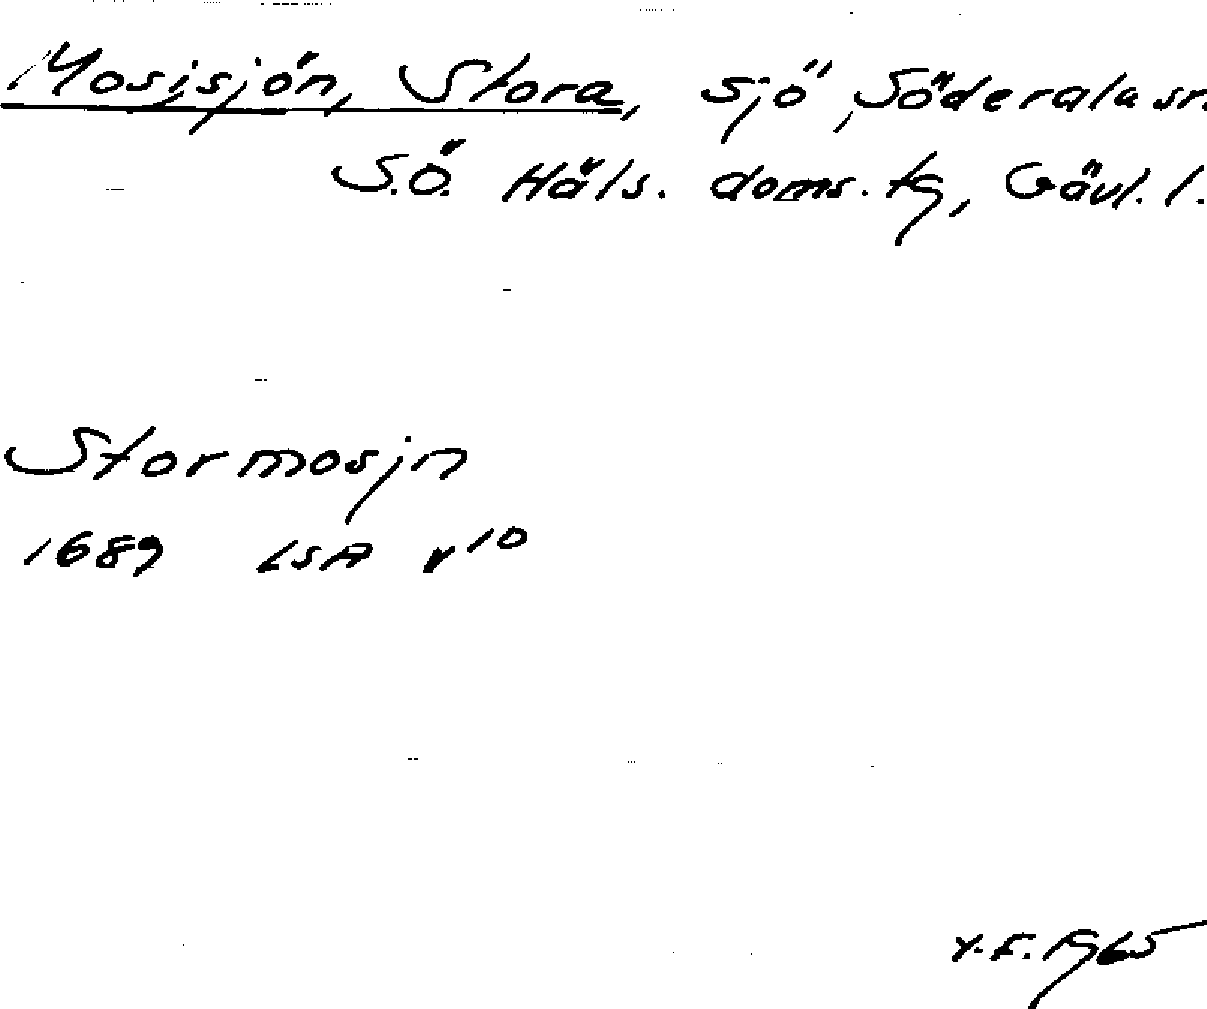 Mosisjön, Stora, sjö, Söderala sn.
S.Ö. Häls. doms. tg, Gävl. l.
Stormosjn
1689 LSA v10
Y.F. 1965